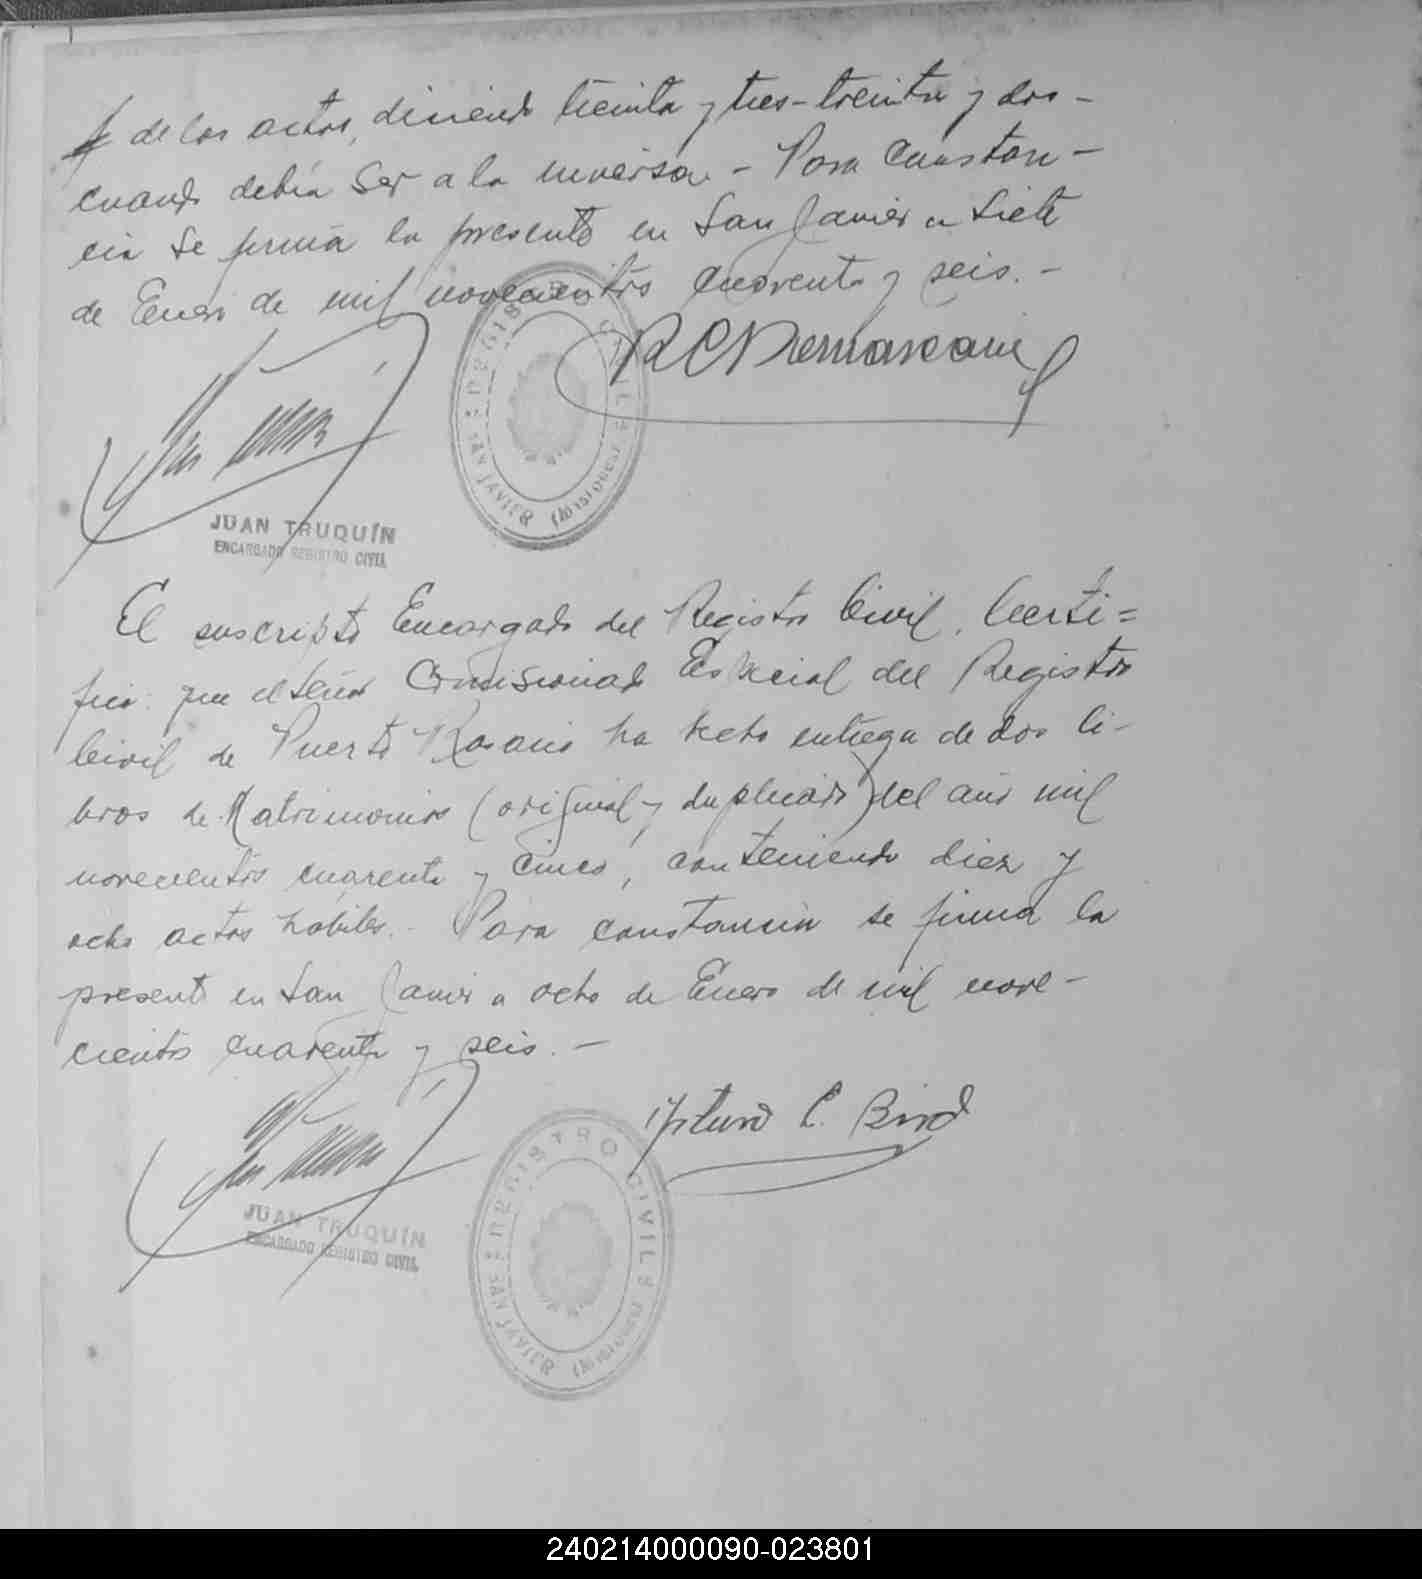 de los actos, diciendo treinta y tres - treinta y dos -
cuando debia ser a la inversa - Para Constan -
cia se firma la presente en San Javier a Siete
de Enero de mil novecientos cuarenta y seis. -
REGISTRO CIVIL
SAN JAVIER (MISIONES)
JUAN TRUQUÍN
ENCARGADO REGISTRO CIVIL
El suscripto Encargado del Registro Civil, Certi=
fica: que el señor Comisionado Especial del Registro
Civil de Puerto Rosario ha hecho entrega de dos li-
bros de Matrimonios (original y duplicado) del año mil
novecientos cuarenta y cinco, conteniendo diez y
ocho actos hábiles. - Para constancia se firma la
presente en San Javier a ocho de Enero de mil nove-
cientos cuarenta y seis. -
Arturo C. Bird
REGISTRO CIVIL
SAN JAVIER (MISIONES)
JUAN TRUQUÍN
ENCARGADO REGISTRO CIVIL
240214000090-023801